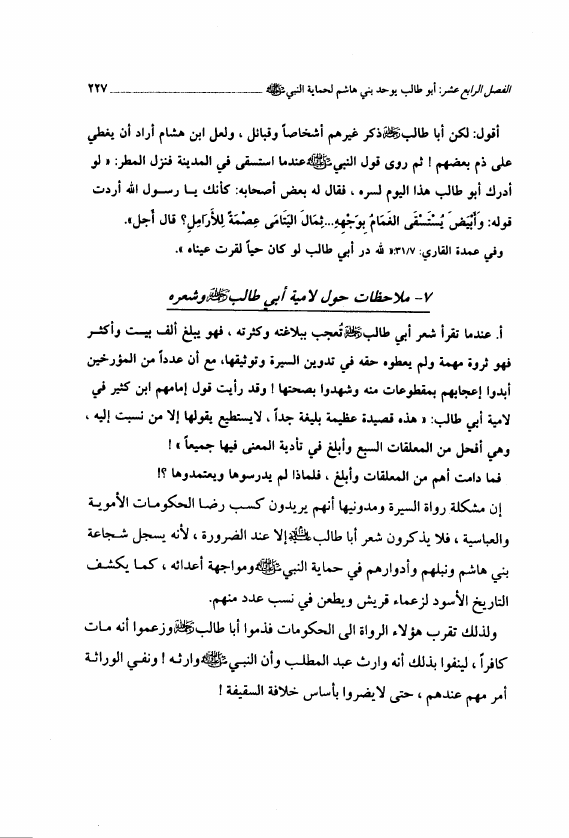 الفصل الرابع عشر: أبو طالب يوحد بني هاشم لحماية النبي ﷺ ٢٢٧
أقول: لكن أبا طالب ذكر غيرهم أشخاصاً وقبائل ، ولعل ابن هشام أراد أن يغطي
على ذم بعضهم ! ثم روى قول النبي ﷺ عندما استسقى في المدينة فنزل المطر: « لو
أدرك أبو طالب هذا اليوم لسره ، فقال له بعض أصحابه: كأنك يـا رسـول الله أردت
قوله: وَأَبْيَضَ يُسْتَسْقَى الغَمَامُ بِوَجْهِهِ...ثِمَالَ اليَتَامَى عِصْمَةً لِلأَرَامِلِ؟ قال أجل».
وفي عمدة القاري: ٣١/٧:« لله در أبي طالب لو كان حياً لقرت عيناه ».
٧- ملاحظات حول لامية أبي طالب وشعره
أ. عندما تقرأ شعر أبي طالب تُعجب ببلاغته وكثرته ، فهو يبلغ ألف بيـت وأكثـر
فهو ثروة مهمة ولم يعطوه حقه في تدوين السيرة وتوثيقها، مع أن عدداً من المؤرخين
أبدوا إعجابهم بمقطوعات منه وشهدوا بصحتها ! وقد رأيت قول إمامهم ابن كثير في
لامية أبي طالب: « هذه قصيدة عظيمة بليغة جداً ، لايستطيع يقولها إلا من نسبت إليه ،
وهي أفحل من المعلقات السبع وأبلغ في تأدية المعنى فيها جميعاً » !
فما دامت أهم من المعلقات وأبلغ ، فلماذا لم يدرسوها ويعتمدوها ؟!
إن مشكلة رواة السيرة ومدونيها أنهم يريدون كسب رضـا الحكومـات الأمويـة
والعباسية ، فلا يذكرون شعر أبا طالب إلا عند الضرورة ، لأنه يسجل شـجاعة
بني هاشم ونبلهم وأدوارهم في حماية النبي ﷺ ومواجهة أعدائه ، كمـا يكشـف
التاريخ الأسود لزعماء قريش ويطعن في نسب عدد منهم.
ولذلك تقرب هؤلاء الرواة الى الحكومات فذموا أبا طالب وزعموا أنه مـات
كافراً ، لينفوا بذلك أنه وارث عبد المطلب وأن النبي ﷺ وارثـه ! ونفـي الوراثـة
أمر مهم عندهم ، حتى لايضروا بأساس خلافة السقيفة !